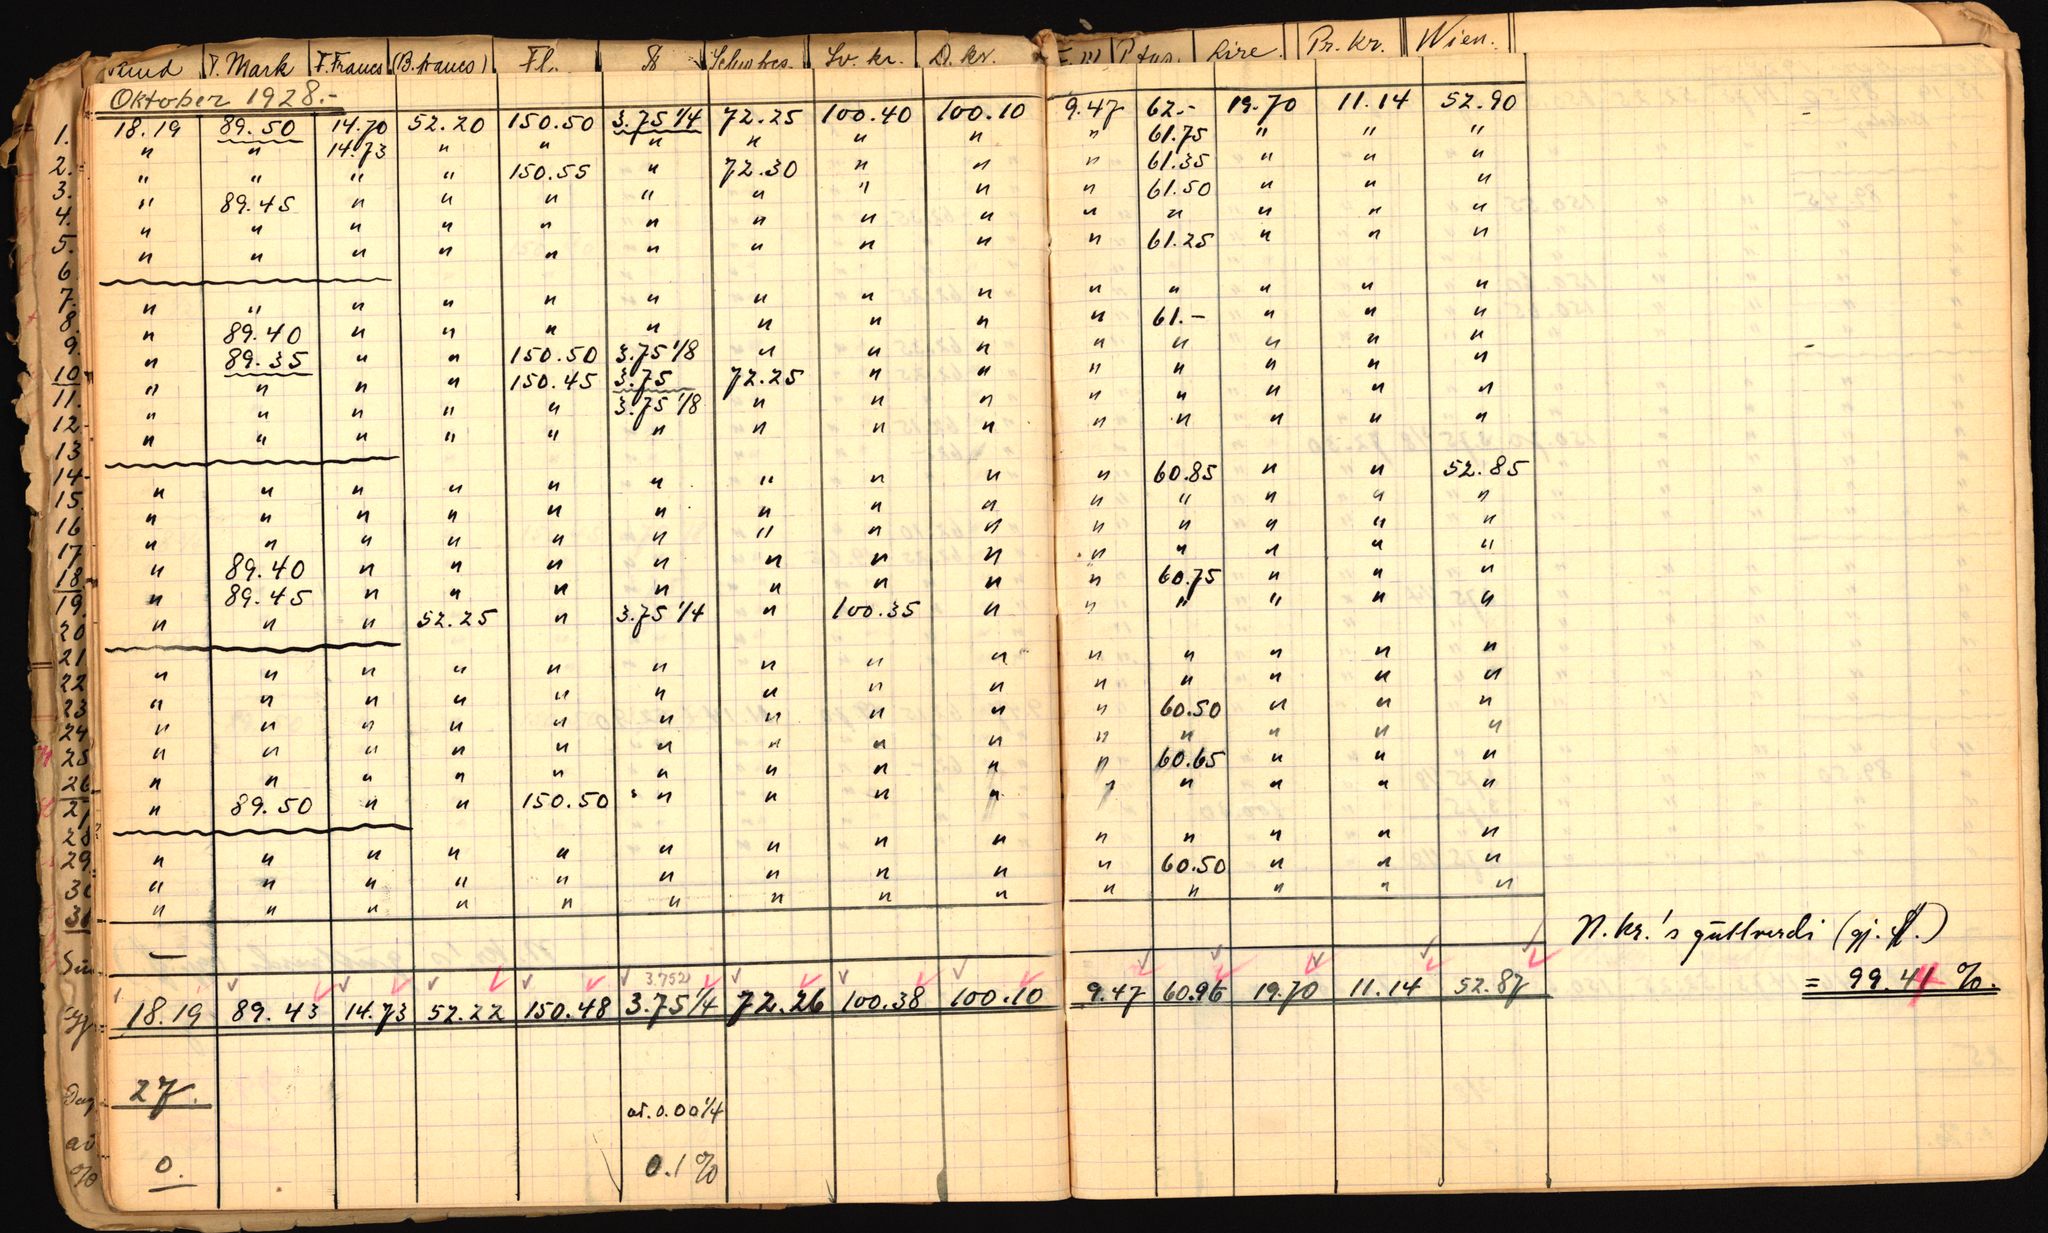 T. Mark F. Francs (B. francs) Fl. $ Schw. frcs. Sv. kr. D. kr. F. M Ptas. Lire. Pr. Kr. Wien.
Oktober 1928.-
1. 18.19 89.50 14.70 52.20 150.50 3.75 1/4 72.25 100.40 100.10 9.47 62.- 19.70 11.14 52.90
2. " " 14.73 " " " " " " " 61.75 " " "
3. " " " " 150.55 " 72.30 " " " 61.35 " " "
4. " 89.45 " " " " " " " " 61.50 " " "
5. " " " " " " " " " " " " " "
6. " " " " " " " " " " 61.25 " " "
7.
8. " " " " " " " " " " " " " "
9. " 89.40 " " " " " " " " 61.- " " "
10. " 89.35 " " 150.50 3.75 1/8 " " " " " " " "
11. " " " " 150.45 3.75 72.25 " " " " " " "
12. " " " " " 3.75 1/8 " " " " " " " "
13 " " " " " " " " " " " " " "
14
15. " " " " " " " " " " 60.85 " " 52.85
16 " " " " " " " " " " " " " "
17 " " " " " " " " " " " " " "
18. " 89.40 " " " " " " " " " " " "
19. " 89.45 " " " " " " " " 60.75 " " "
20 " " " 52.25 " 3.75 1/4 " 100.35 " " " " " "
21
22 " " " " " " " " " " " " " "
23 " " " " " " " " " " " " " "
24 " " " " " " " " " " 60.50 " " "
25 " " " " " " " " " " " " " "
26 " " " " " " " " " " 60.65 " " "
27 " 89.50 " " 150.50 " " " " " " " " "
28
29. " " " " " " " " " " " " " "
30 " " " " " " " " " " 60.50 " " "
31 " " " " " " " " " " " " " "
N. kr.'s gullverdi (gj. $.)
= 99.41 %.
3752
18.19 89.43 14.73 52.22 150.48 3.75 1/4 72.26 100.38 100.10 9.47 60.96 19.70 11.14 52.87
Dag 27.
av. 0.00 1/4
% 0. 0.1 %